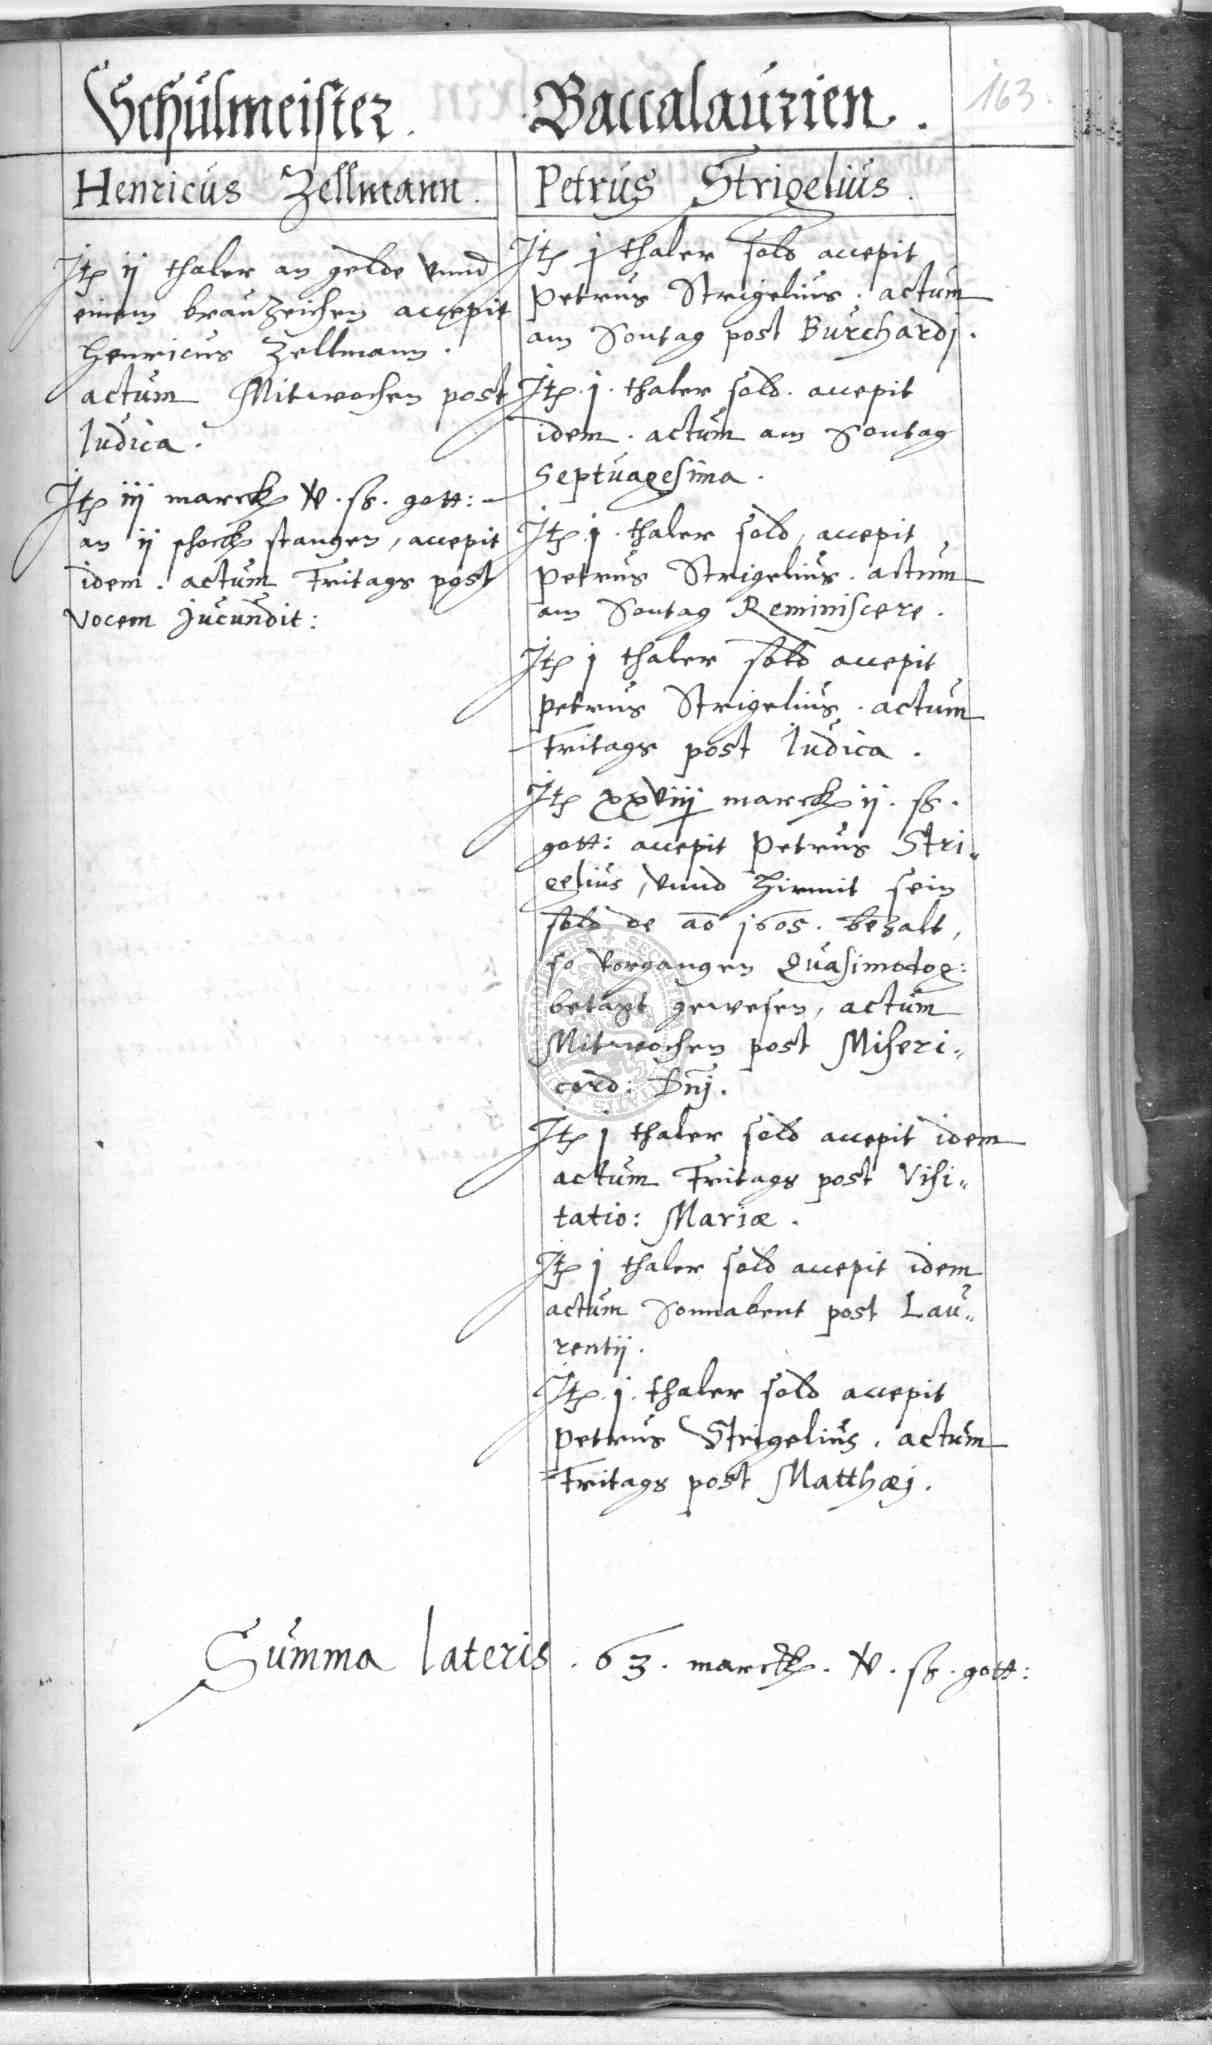 163.
Schulmeister.
Henricus Zellmann.
Itҽ ij thaler an gelde vnnd
einem brauzeichen accepit
Henricus Zellmann.
actum Mitwochen post
Iudica.
Itҽ iij marck v. ß. gott:
an ij schock stangen, accepit
idem. actum Fritags post
Vocem Jucundit:
Baccalaurien.
Petrus Strigelius.
Itҽ j thaler sold accepit
Petrus Strigelius. actum
am Sontag post Burchardj.
Itҽ. j. thaler sold. accepit
idem. actum am Sontag
Septuagesima.
Itҽ. j. thaler sold, accepit
Petrus Strigelius. actum
am Sontag Reminiscere.
Itҽ j thaler sold accepit
Petrus Strigelius. actum
Fritags post Iudica.
Itҽ xxviij marck ij. ß.
gott: accepit Petrus Stri„
gelius, vnnd hirmit sein
sold de aō 1605. bezalt,
so vorgangen Quasimodog:
betagt gewesen, actum
Mitwochen post Miseri„
cord: Dnj.
Itҽ j thaler sold accepit idem
actum Fritags post Visi„
tatio: Mariæ.
Itҽ j thaler sold accepit idem
actum Sonnabent post Lau„
rentij.
Itҽ. j. thaler sold accepit
Petrus Strigelius. actum
Fritags post Matthæj.
Summa lateris. 63. marck. v. ß. gott: